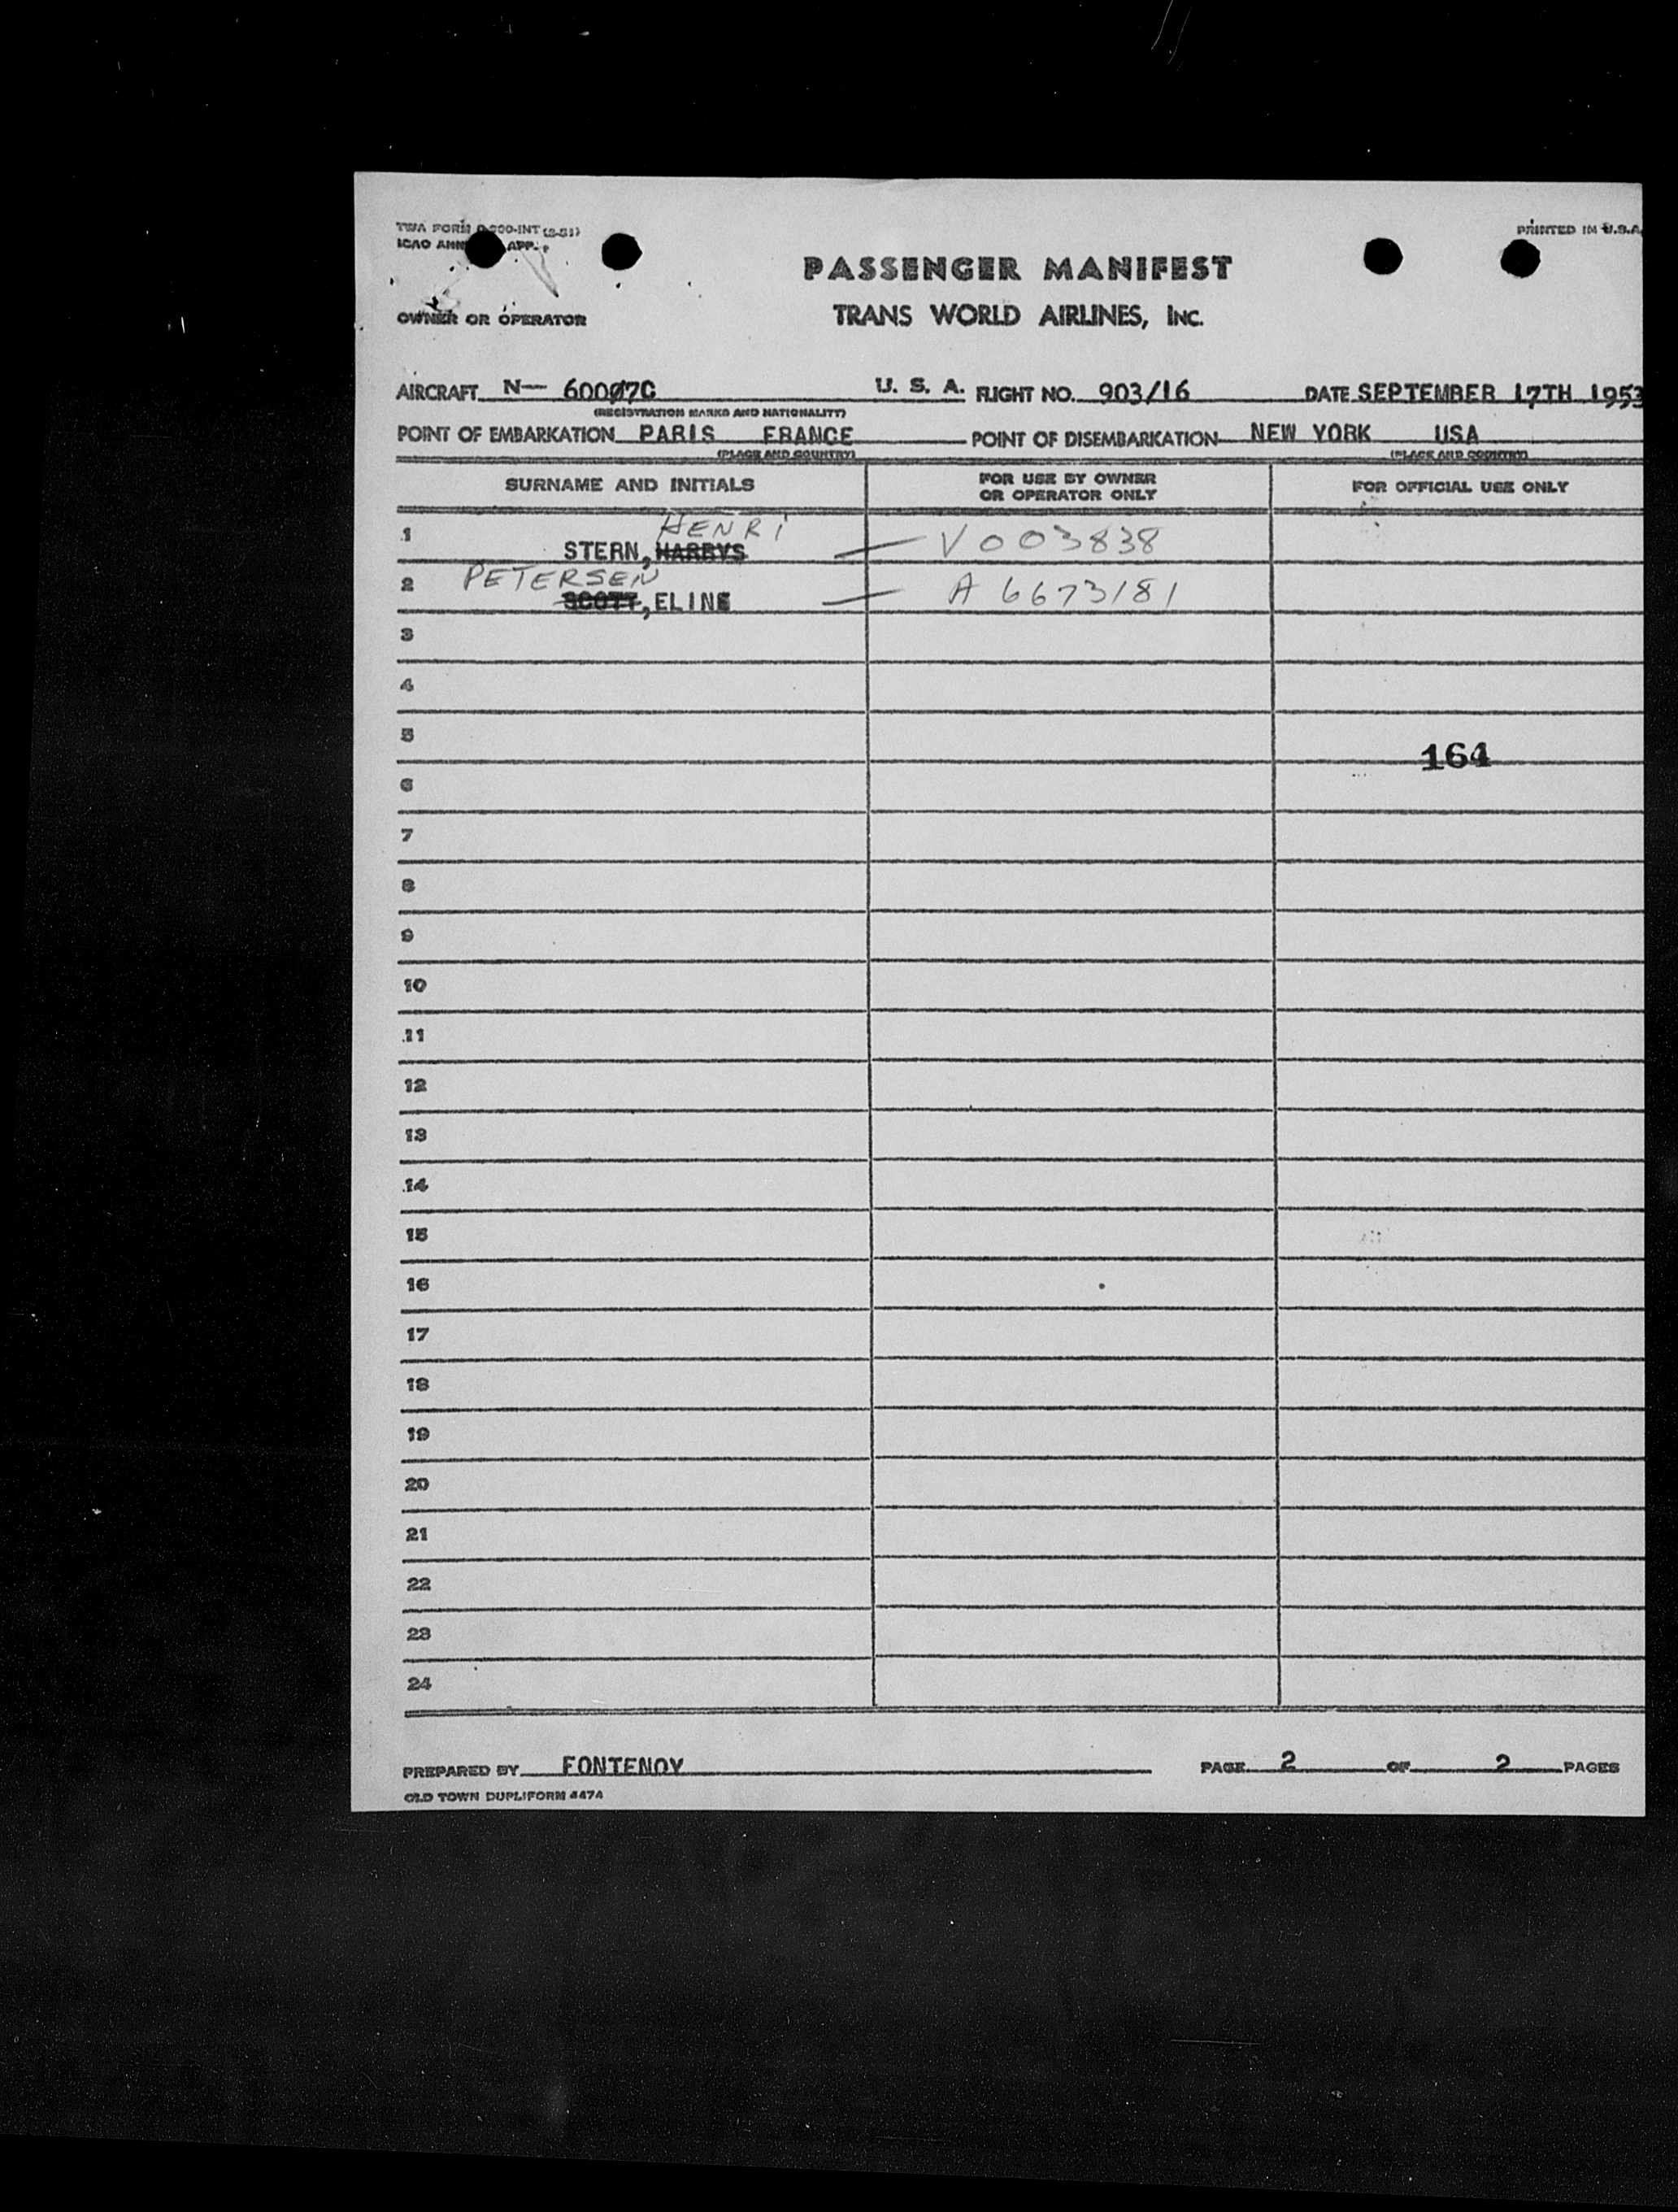 TWA FORM -INT (2-51)
PRINTED IN U.S.A.
ICAO APP.
PASSENGER MANIFEST
OWNER OR OPERATOR
TRANS WORLD AIRLINES, INC.
AIRCRAFT N— 60007C U. S. A. FLIGHT NO. 903/16 DATE SEPTEMBER 17TH 1953
(REGISTRATION MARKS AND NATIONALITY)
POINT OF EMBARKATION PARIS FRANCE POINT OF DISEMBARKATION NEW YORK USA
(PLACE AND COUNTRY) (PLACE AND COUNTRY)
SURNAME AND INITIALS FOR USE BY OWNER OR OPERATOR ONLY FOR OFFICIAL USE ONLY
HENRI
1 STERN, HARRYS — V003838
PETERSEN
2 SCOTT, ELINE — A 6673181
3
4
5
164
6
7
8
9
10
11
12
13
14
15
16
17
18
19
20
21
22
23
24
PREPARED BY FONTENOY PAGE 2 OF 2 PAGES
OLD TOWN DUPLIFORM 4474